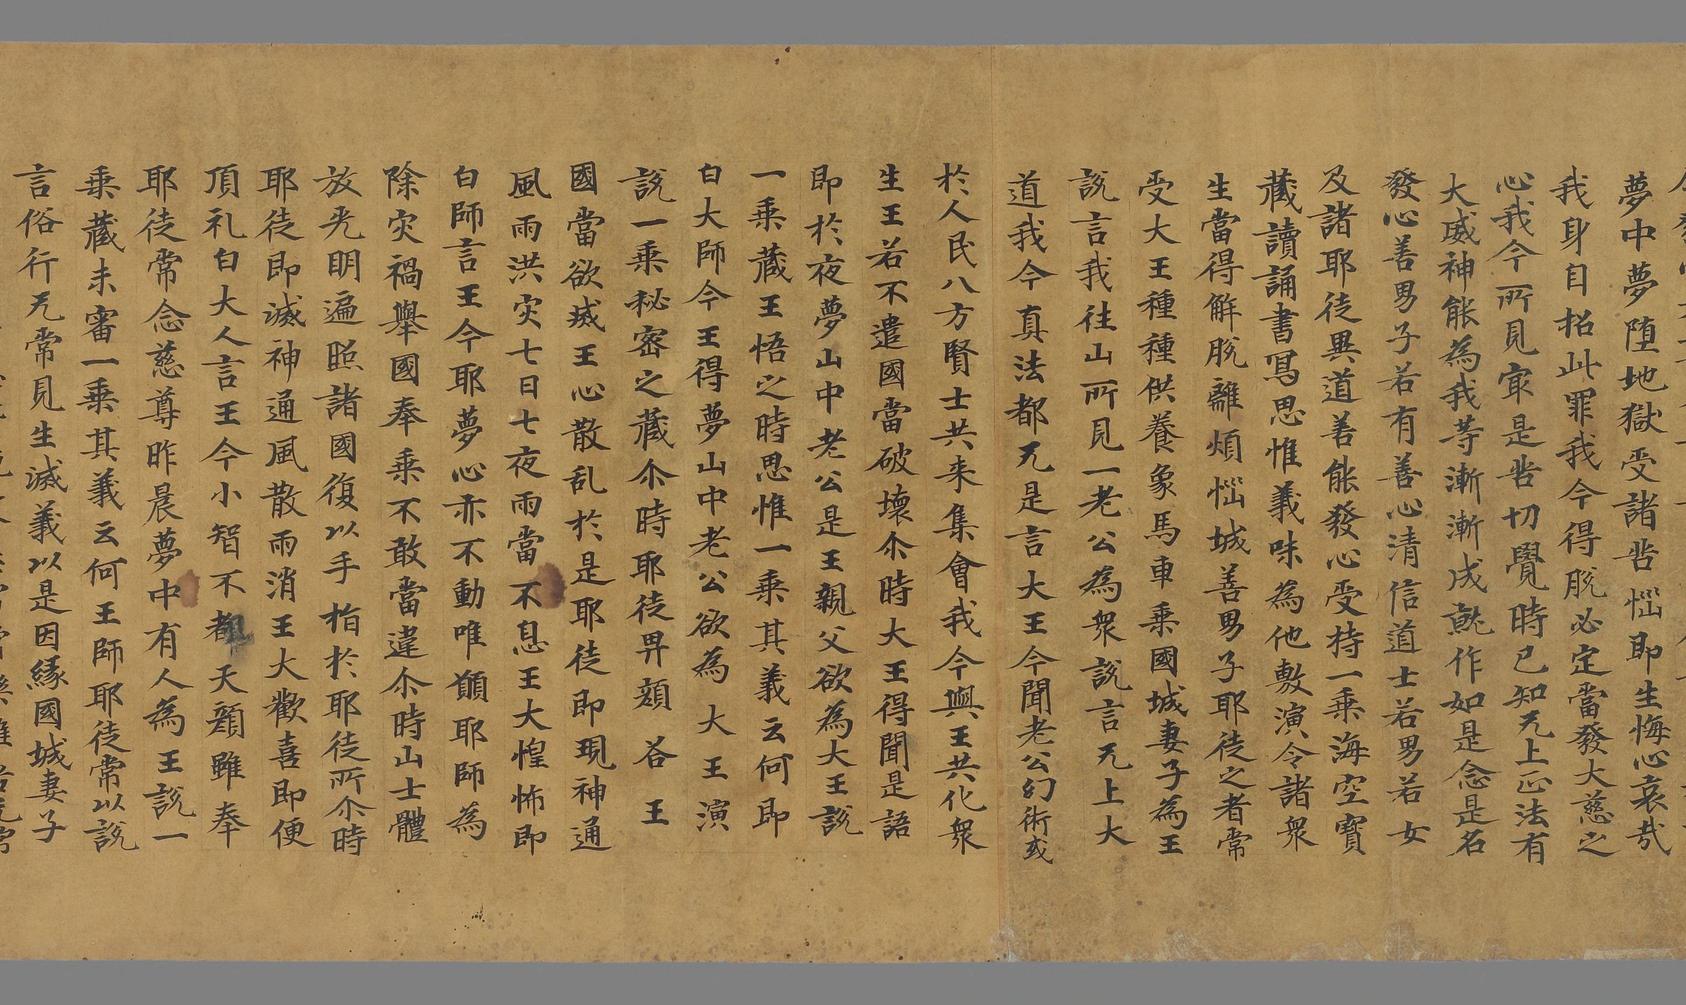 夢中夢堕地獄受諸苦惱即生悔心哀哉
我身自招此罪我今得脫必定當發大慈之
心我今所見寂是苦切覺時已知无上正法有
大威神能為我等漸漸成就作如是念是名
發心善男子若有善心清信道士若男若女
及諸耶徒異道善能發心受持一乗海空寶
藏讀誦書寫思惟義味為他敷演令諸衆
生當得解脫離煩惱城善男子耶徒之者常
受大王種種供養象馬車乗國城妻子為王
說言我往山所見一老公為衆說言无上大
道我今真法都无是言大王今聞老公幻術或
於人民八方賢士共来集會我今與王共化衆
生王若不遣國當破壞尒時大王得聞是語
即於夜夢山中老公是王親父欲為大王說
一乗藏王悟之時思惟一乗其義云何即
白大師今王得夢山中老公欲為大王演
說一乗秘密之藏尒時耶徒畀顔荅王
國當欲滅王心散乱於是耶徒即現神通
風雨洪灾七日七夜雨當不息王大惶怖即
白師言王今耶夢心亦不動唯願耶師為
除灾禍舉國奉乗不敢當違尒時山士體
放光明遍照諸國復以手指於耶徒所尒時
耶徒即滅神通風散雨消王大歡喜即便
頂礼白大人言王今小智不都天顔雖奉
耶徒常念慈尊昨晨夢中有人為王說一
乗藏未審一乗其義云何王師耶徒常以說
言俗行无常見生滅義以是因緣國城妻子